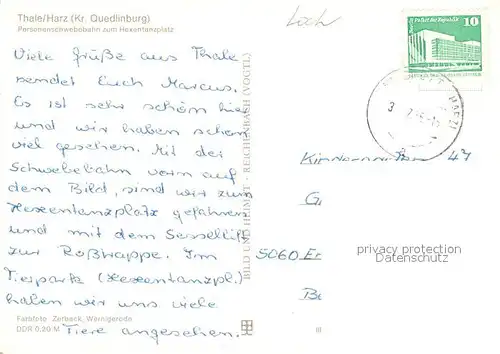 Thale/Harz (Kr. Quedlinburg)
Personenschwebebahn zum Hexentanzplatz
Viele Grüße aus Thale
sendet Euch Marcus.
Es ist sehr schön hier
und wir haben schon
viel gesehen. Mit der
Schwebebahn vorn auf
dem Bild, sind wir zum
Hexentanzplatz gefahren
und mit dem Sessellift
zur Roßtrappe. Im
Tierpark (Hexentanzpl.)
haben wir uns viele
Tiere angesehen.
Farbfoto: Zerback, Wernigerode
DDR 0,20 M
BILD UND HEIMAT · REICHENBACH (VOGTL)
Palast der Republik
10
47
G
5060 Er
B
privacy protection
Datenschutz